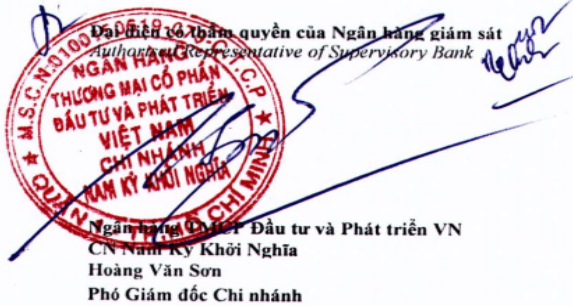 Đại diện có thẩm quyền của Ngân hàng giám sát
Authorized Representative of Supervisory Bank
M.S.C.N:0100
C.P
NGÂN HÀNG
THƯƠNG MẠI CỔ PHẦN
ĐẦU TƯ VÀ PHÁT TRIỂN
VIỆT NAM
CHI NHÁNH
NAM KỲ KHỞI NGHĨA
QUẬN 1 - TP. HỒ CHÍ MINH
Ngân hàng TMCP Đầu tư và Phát triển VN
CN Nam Kỳ Khởi Nghĩa
Hoàng Văn Sơn
Phó Giám đốc Chi nhánh